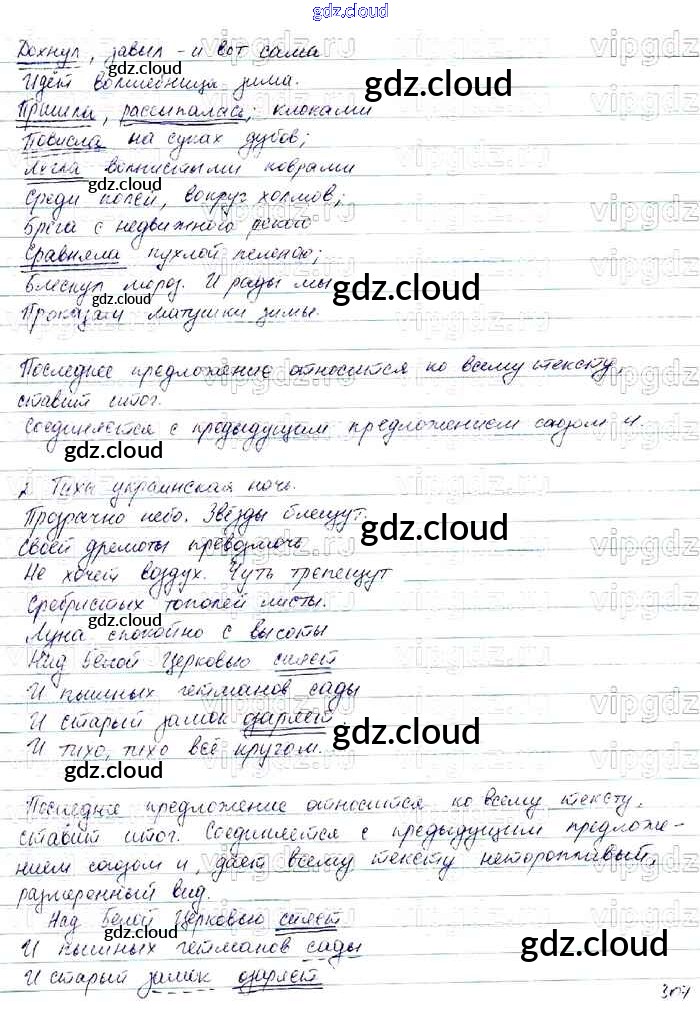 gdz.cloud
Дохнул, завыл - и вот сама
Идёт волшебница зима.
Пришла, рассыпалась; клоками
Повисла на суках дубов;
Легла волнистыми коврами
Среди полей, вокруг холмов;
Брега с недвижного рекою
Сравняла пухлой пеленою;
Блеснул мороз. И рады мы
Проказам матушки зимы.
Последнее предложение относится ко всему тексту,
ставит итог.
Соединяется с предыдущим предложением союзом и.
2. Тиха украинская ночь.
Прозрачно небо. Звёзды блещут.
Своей дремоты превозмочь
Не хочет воздух. Чуть трепещут
Сребристых тополей листы.
Луна спокойно с высоты
Над Белой Церковью сияет
И пышных гетманов сады
И старый замок озаряет.
И тихо, тихо всё кругом.
Последнее предложение относится ко всему тексту,
ставит итог. Соединяется с предыдущим предложе-
нием союзом и, даёт всему тексту неторопливый,
размеренный вид.
Над Белой Церковью сияет
И пышных гетманов сады
И старый замок озаряет